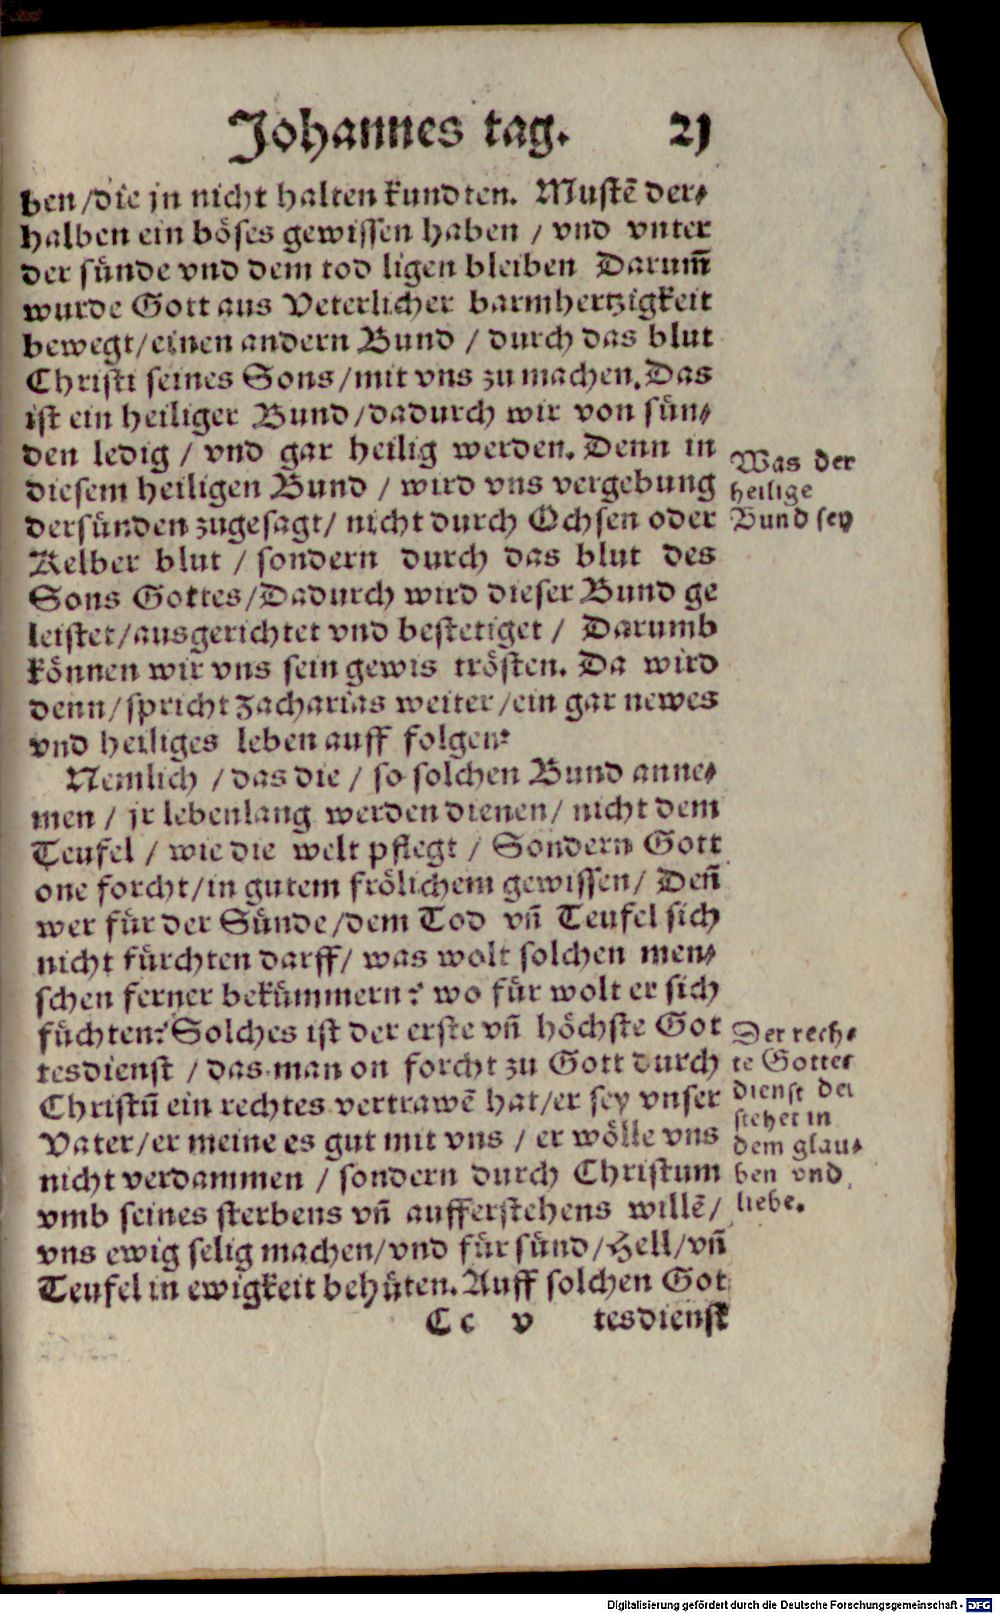 Johannes tag. 21
ben /die jn nicht halten kundten. Mustē der⸗
halben ein böses gewissen haben / vnd vnter
der sünde vnd dem tod ligen bleiben Darum̄
wurde Gott aus Veterlicher barmhertzigkeit
bewegt/einen andern Bund / durch das blut
Christi seines Sons/mit vns zu machen. Das
ist ein heiliger Bund/dadurch wir von sün⸗
den ledig / vnd gar heilig werden. Denn in
diesem heiligen Bund / wird vns vergebung
dersünden zugesagt/ nicht durch Ochsen oder
Kelber blut / sondern durch das blut des
Sons Gottes/Dadurch wird dieser Bund ge
leistet/ausgerichtet vnd bestetiget / Darumb
können wir vns sein gewis trösten. Da wird
denn/spricht Zacharias weiter/ein gar newes
vnd heiliges leben auff folgen:
Was der
heilige
Bund sey
Nemlich /das die / so solchen Bund anne⸗
men / jr lebenlang werden dienen/ nicht dem
Teufel / wie die welt pflegt / Sondern Gott
one forcht/in gutem frölichem gewissen/ Deñ
wer für der Sünde/dem Tod vñ Teufel sich
nicht fürchten darff/ was wolt solchen men⸗
schen ferner bekümmern? wo für wolt er sich
füchten? Solches ist der erste vñ höchste Got
tesdienst / das man on forcht zu Gott durch
Christū ein rechtes vertrawē hat/er sey vnser
Vater/er meine es gut mit vns / er wölle vns
nicht verdammen / sondern durch Christum
vmb seines sterbens vñ aufferstehens willē/
vns ewig selig machen/vnd für sünd/Hell/vñ
Teufel in ewigkeit behüten. Auff solchen Got
Der rech⸗
te Gottes
dienst be
stehet in
dem glau⸗
ben vnd
liebe.
Cc v tesdienst
Digitalisierung gefördert durch die Deutsche Forschungsgemeinschaft - DFG